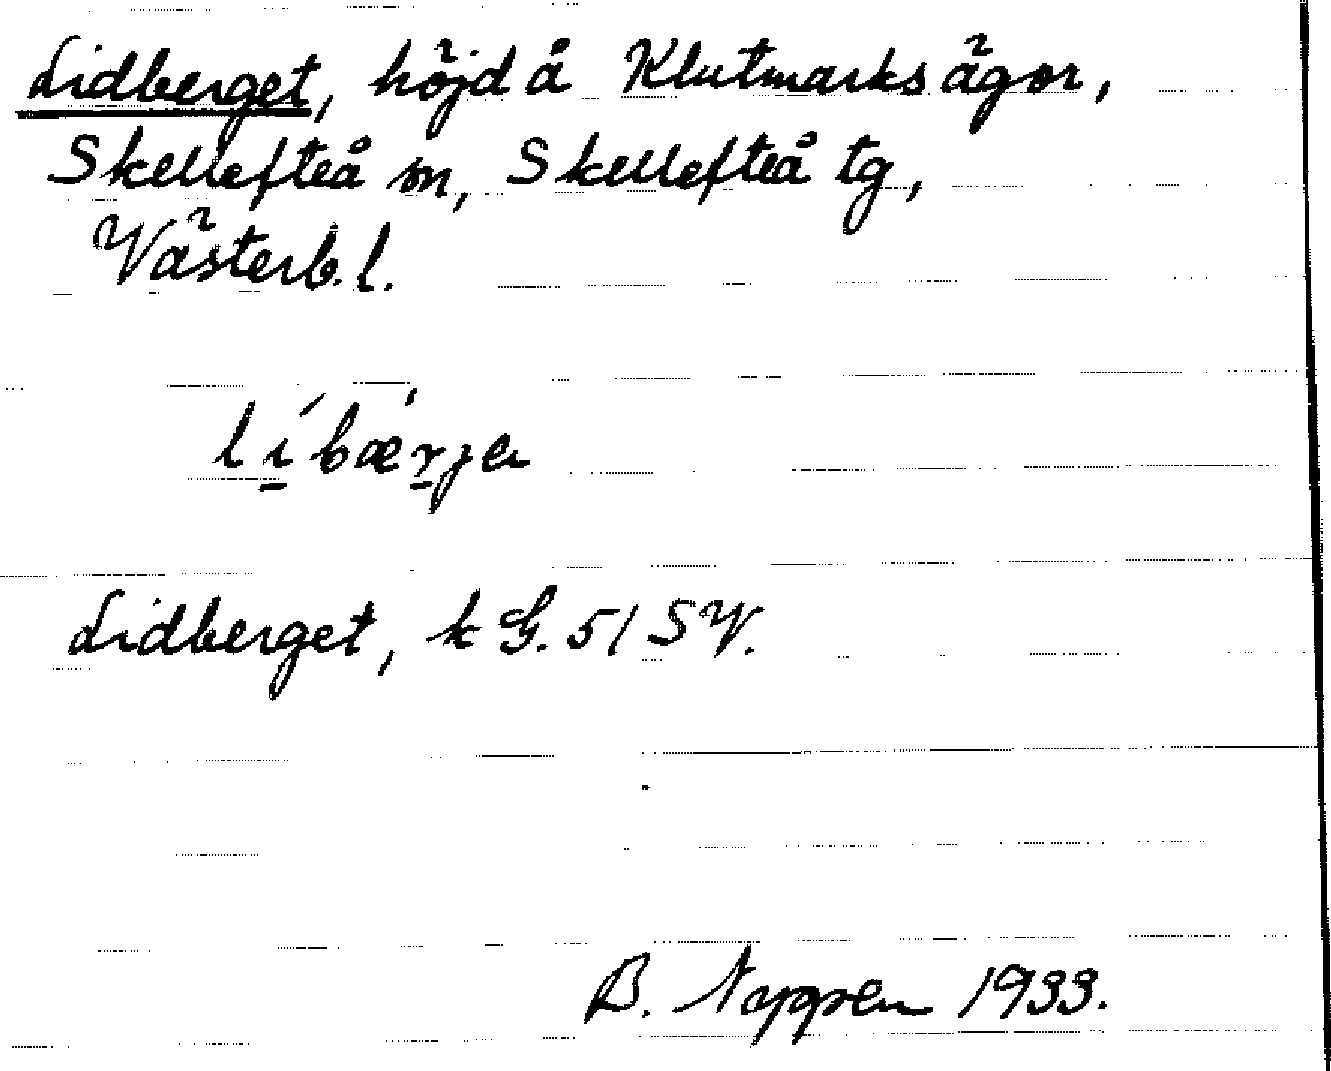 Lidberget, höjd å Klutmarks ägor,
Skellefteå sn, Skellefteå tg,
Västerb. l.
lì́bæ̀rja
Lidberget, k G. 51 SV.
1933.